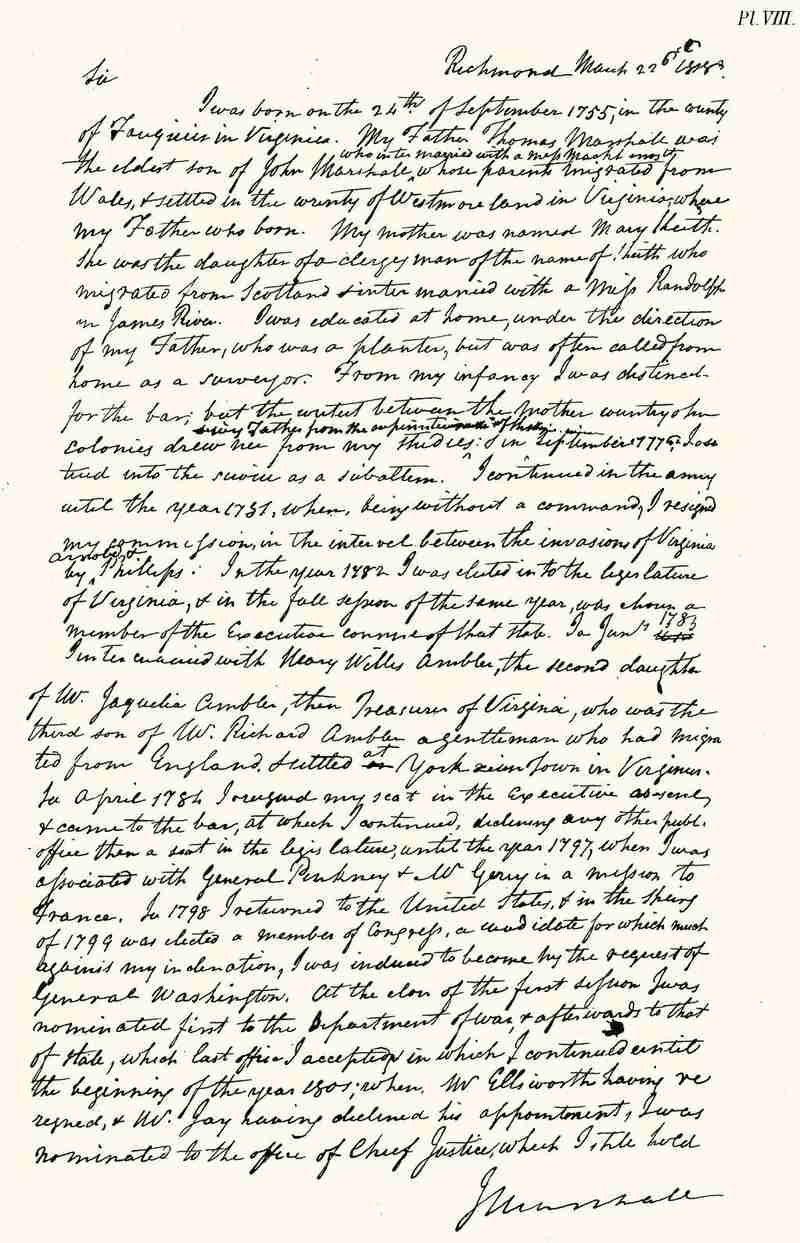 Pl. VIII.
Richmond March 22d 1818.
Sir
I was born on the 24th of September 1755, in the county
of Fauquier in Virginia. My Father Thomas Marshall was
who intermarried with a miss Markham
the eldest son of John Marshall, whose parents migrated from
Wales, & settled in the county of Westmoreland in Virginia, where
my Father was born. My mother was named Mary Keith.
She was the daughter of a clergyman of the name of Keith who
migrated from Scotland & intermarried with a Miss Randolph
on James River. I was educated at home, under the direction
of my Father, who was a planter, but was often called from
home as a surveyor. From my infancy I was destined
for the bar; but the contest between the mother country & her
& my Father from the superintendence of
colonies drew me from my studies; & in September 1775 I en
tered into the service as a subaltern. I continued in the army
until the year 1781, when, being without a command, I resigned
my commission, in the interval between the invasions of Virginia
arnold &
by Phillips. In the year 1782 I was elected into the legislature
of Virginia, & in the fall session of the same year, was chosen a
member of the Executive council of that state. In Jany 1783
I intermarried with Mary Willis Ambler, the second daughter
of Mr. Jaquelin Ambler, then Treasurer of Virginia, who was the
third son of Mr. Richard Ambler a gentleman who had migra
ted from England & settled at York Town in Virginia.
In April 1784 I resigned my seat in the Executive council,
& came to the bar, at which I continued, declining any other publ.
office than a seat in the legislature, until the year 1797, when I was
associated with General Pinkney & Mr Gerry in a mission to
France. In 1798 I returned to the United States, & in the spring
of 1799 was elected a member of Congress, a candidate for which much
against my inclination, I was induced to become by the request of
General Washington. At the close of the first session I was
nominated first to the Department of war, & afterwards to that
of state, which last office I accepted & in which I continued until
the beginning of the year 1801; when Mr Ellsworth having re
signed, & Mr. Jay having declined his appointment, I was
nominated to the office of Chief Justice, which I still hold
J Marshall